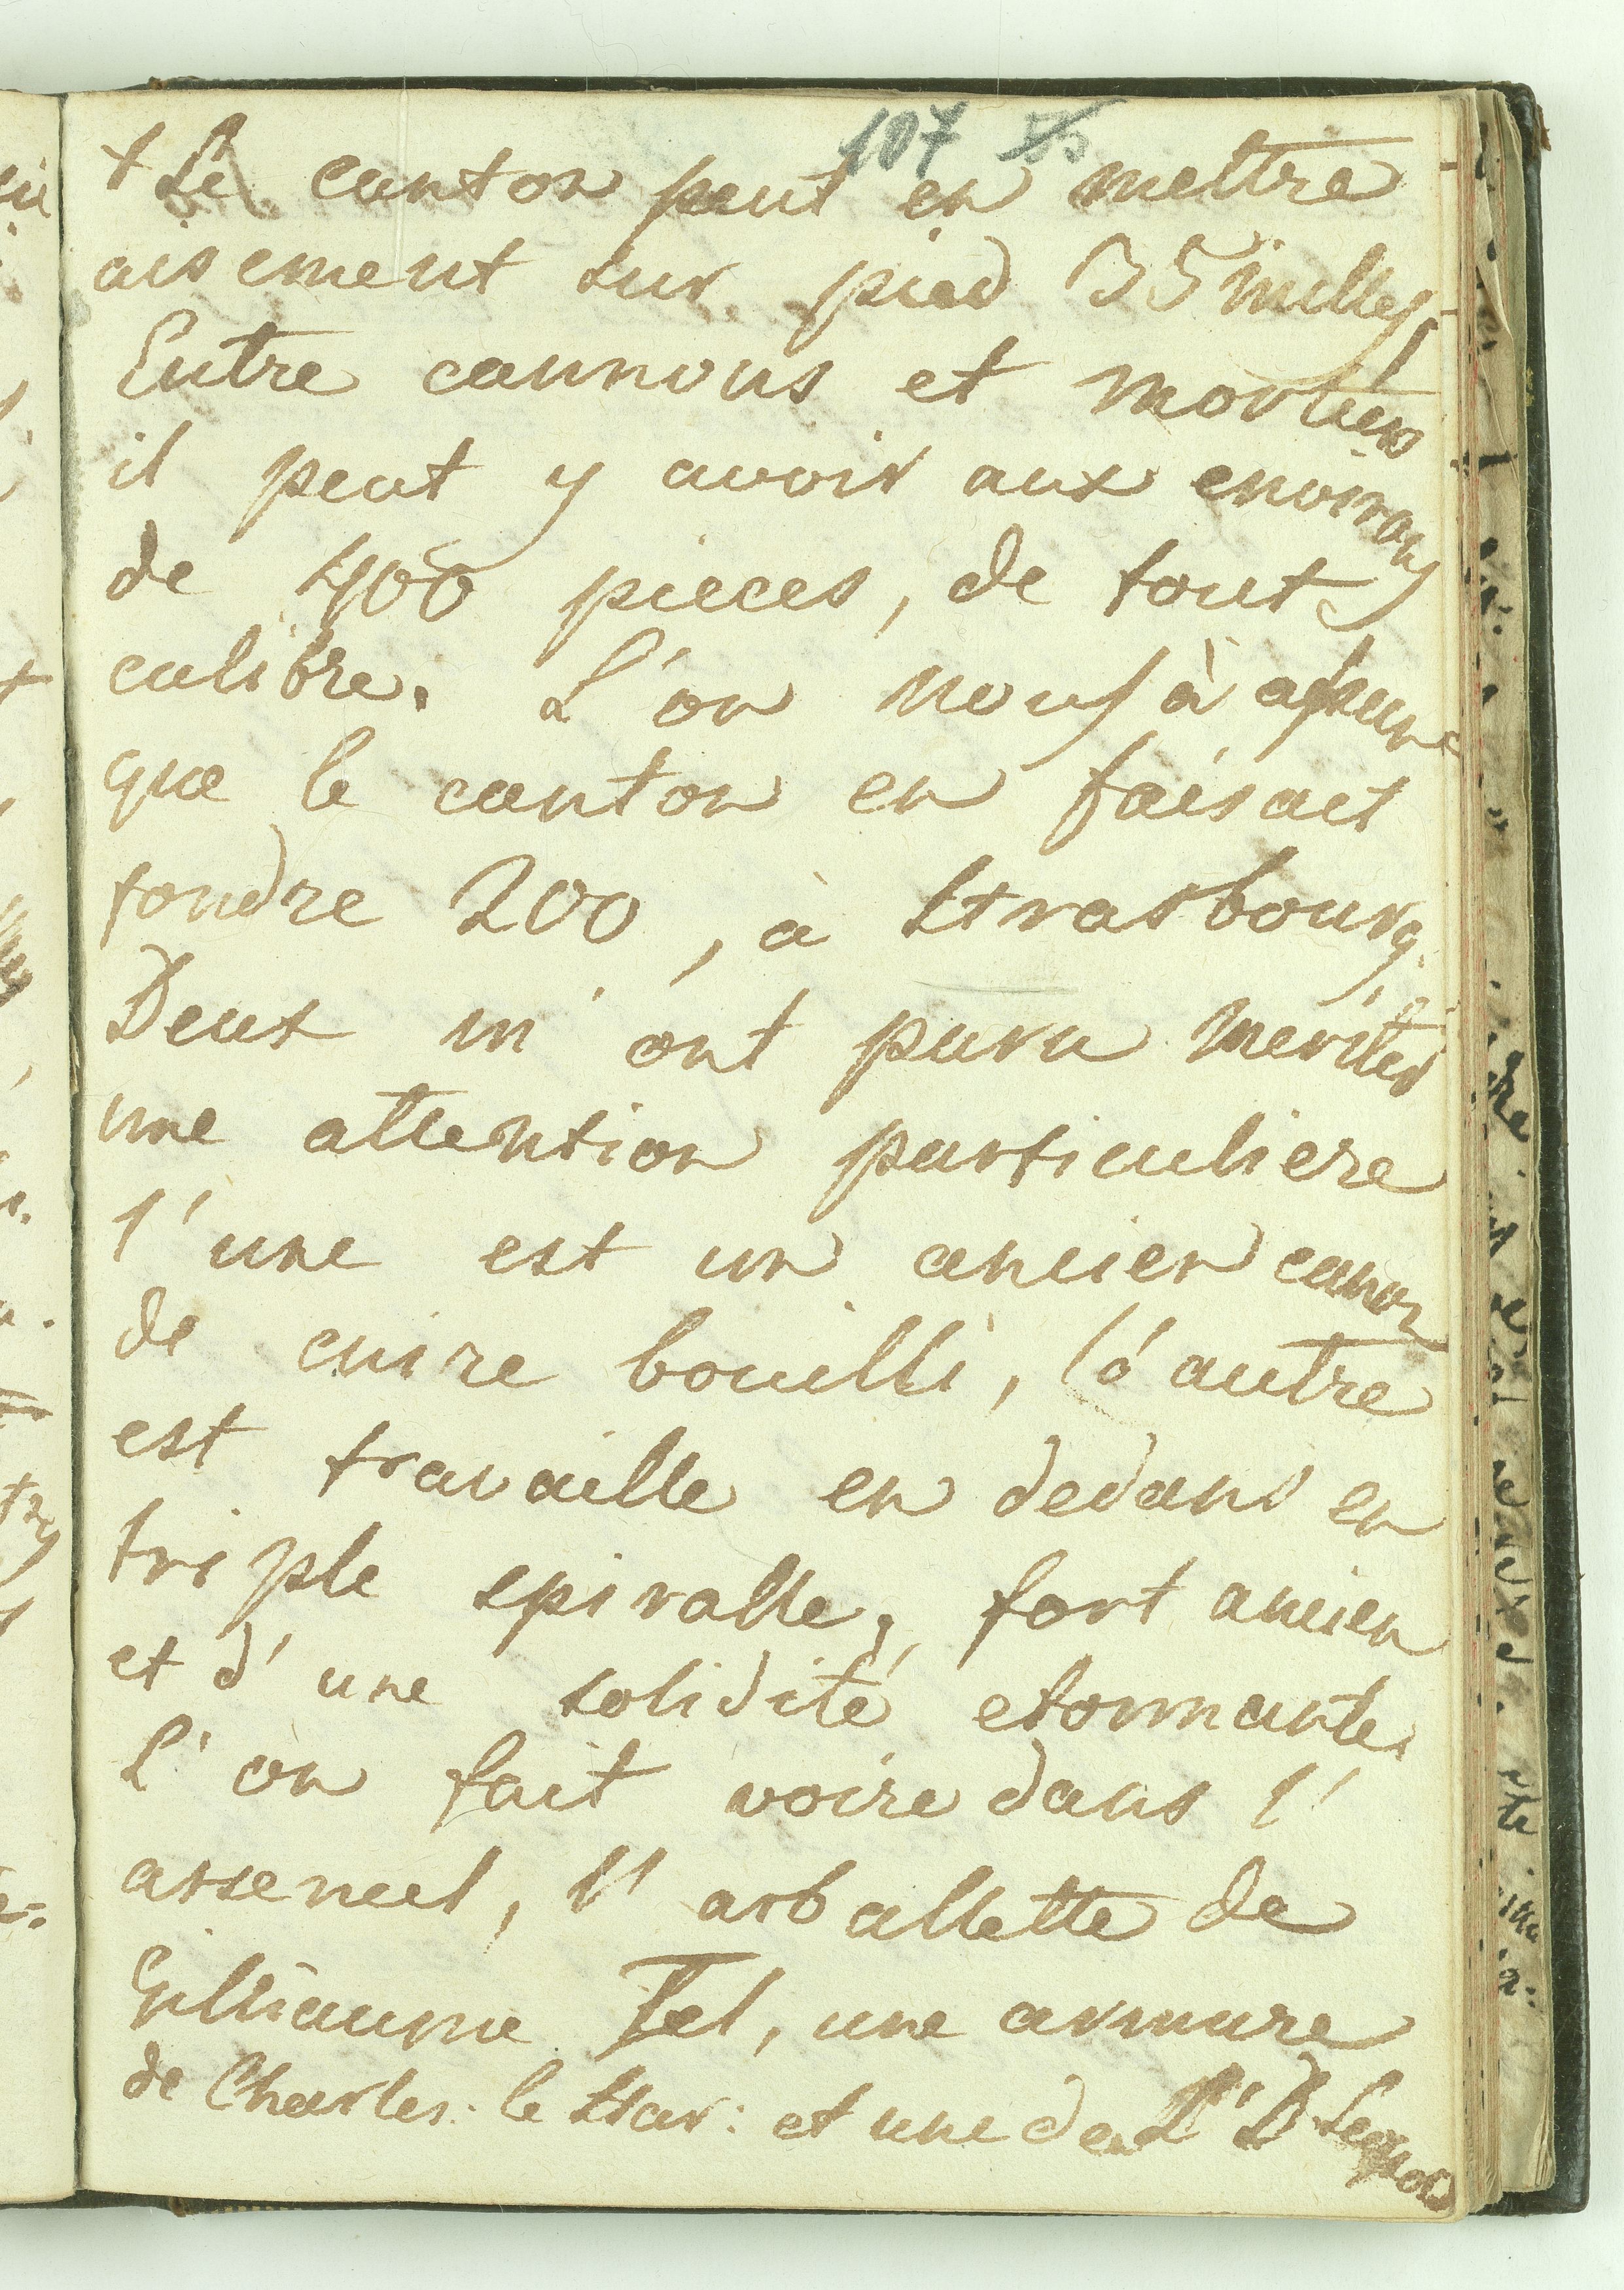 107 55
+ Le canton peut en mettre
aisement sur pied 35 milles.
Entre cannons et mortiers
il peut y avoir aux environs
de 400 pieces, de tout
calibre. L'on nous à assure
que le canton en faisait
fondre 200, à Strasbourg.
Deux m'ont paru mériter
une attention particuliere
l'une est un ancien canon
de cuire bouilli, l'autre
est travaille en dedans en
triple spiralle, fort ancien
et d'une solidité etonnante.
L'on fait voire dans l'
assenal, l'arballette de
Gilliaume Tel, une armure
de Charles: le Har: et une de